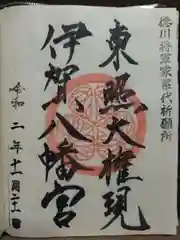 徳川将軍家歴代祈願所
東照大権現
伊賀八幡宮
令和二年十一月二十二日